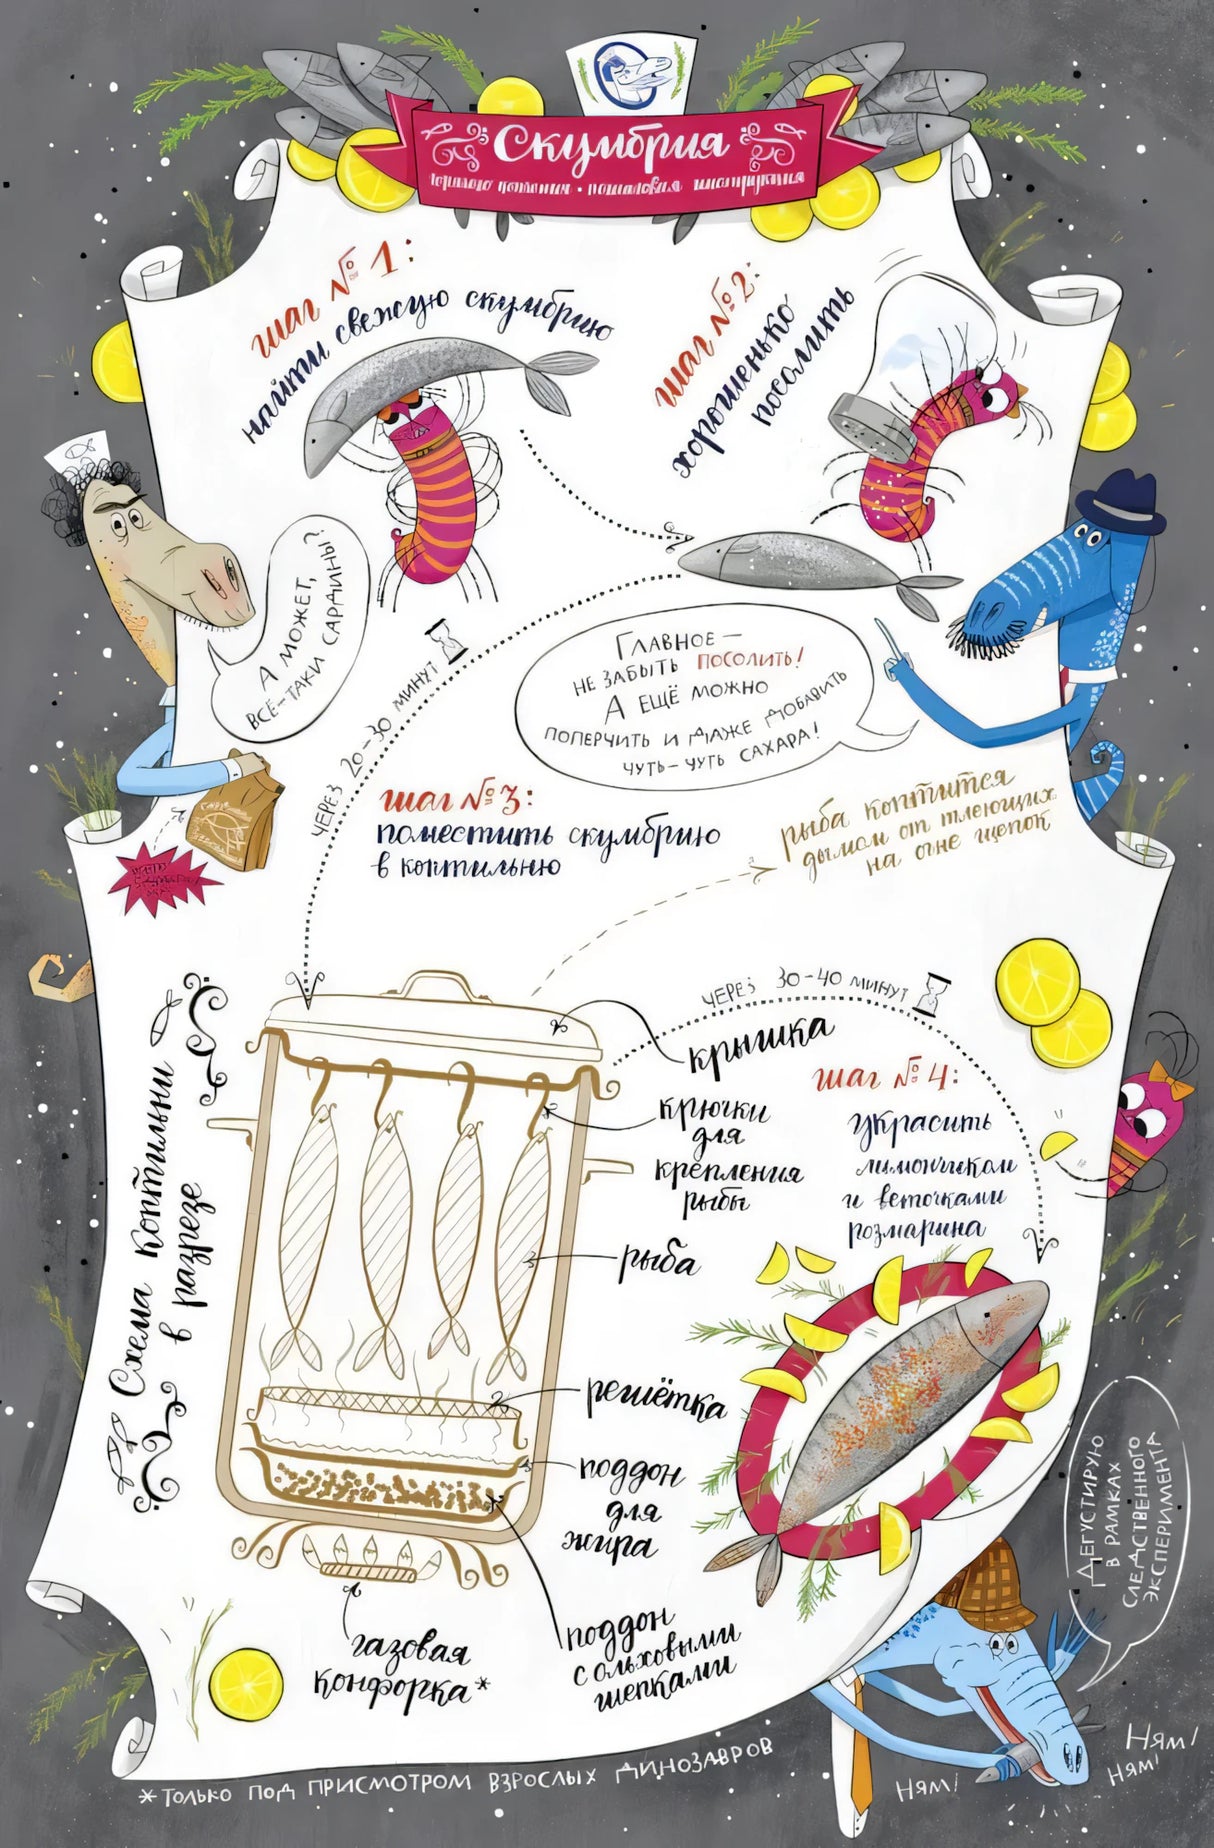 Скумбрия
горячего копчения • пошаговая инструкция
шаг № 1:
найти свежую скумбрию
шаг № 2:
хорошенько
посолить
А МОЖЕТ,
ВСЁ-ТАКИ САРДИНЫ?
ГЛАВНОЕ —
НЕ ЗАБЫТЬ ПОСОЛИТЬ!
А ЕЩЁ МОЖНО
ПОПЕРЧИТЬ И ДАЖЕ ДОБАВИТЬ
ЧУТЬ-ЧУТЬ САХАРА!
ЧЕРЕЗ 20-30 МИНУТ
шаг № 3:
поместить скумбрию
в коптильню
рыба коптится
дымом от тлеющих
на огне щепок
Схема коптильни
в разрезе
ЧЕРЕЗ 30-40 МИНУТ
крышка
крючки
для
крепления
рыбы
рыба
решётка
поддон
для
жира
поддон
с ольховыми
щепками
газовая
конфорка*
шаг № 4:
украсить
лимончиком
и веточками
розмарина
ДЕГУСТИРУЮ
В РАМКАХ
СЛЕДСТВЕННОГО
ЭКСПЕРИМЕНТА
НЯМ!
НЯМ!
НЯМ!
*ТОЛЬКО ПОД ПРИСМОТРОМ ВЗРОСЛЫХ ДИНОЗАВРОВ